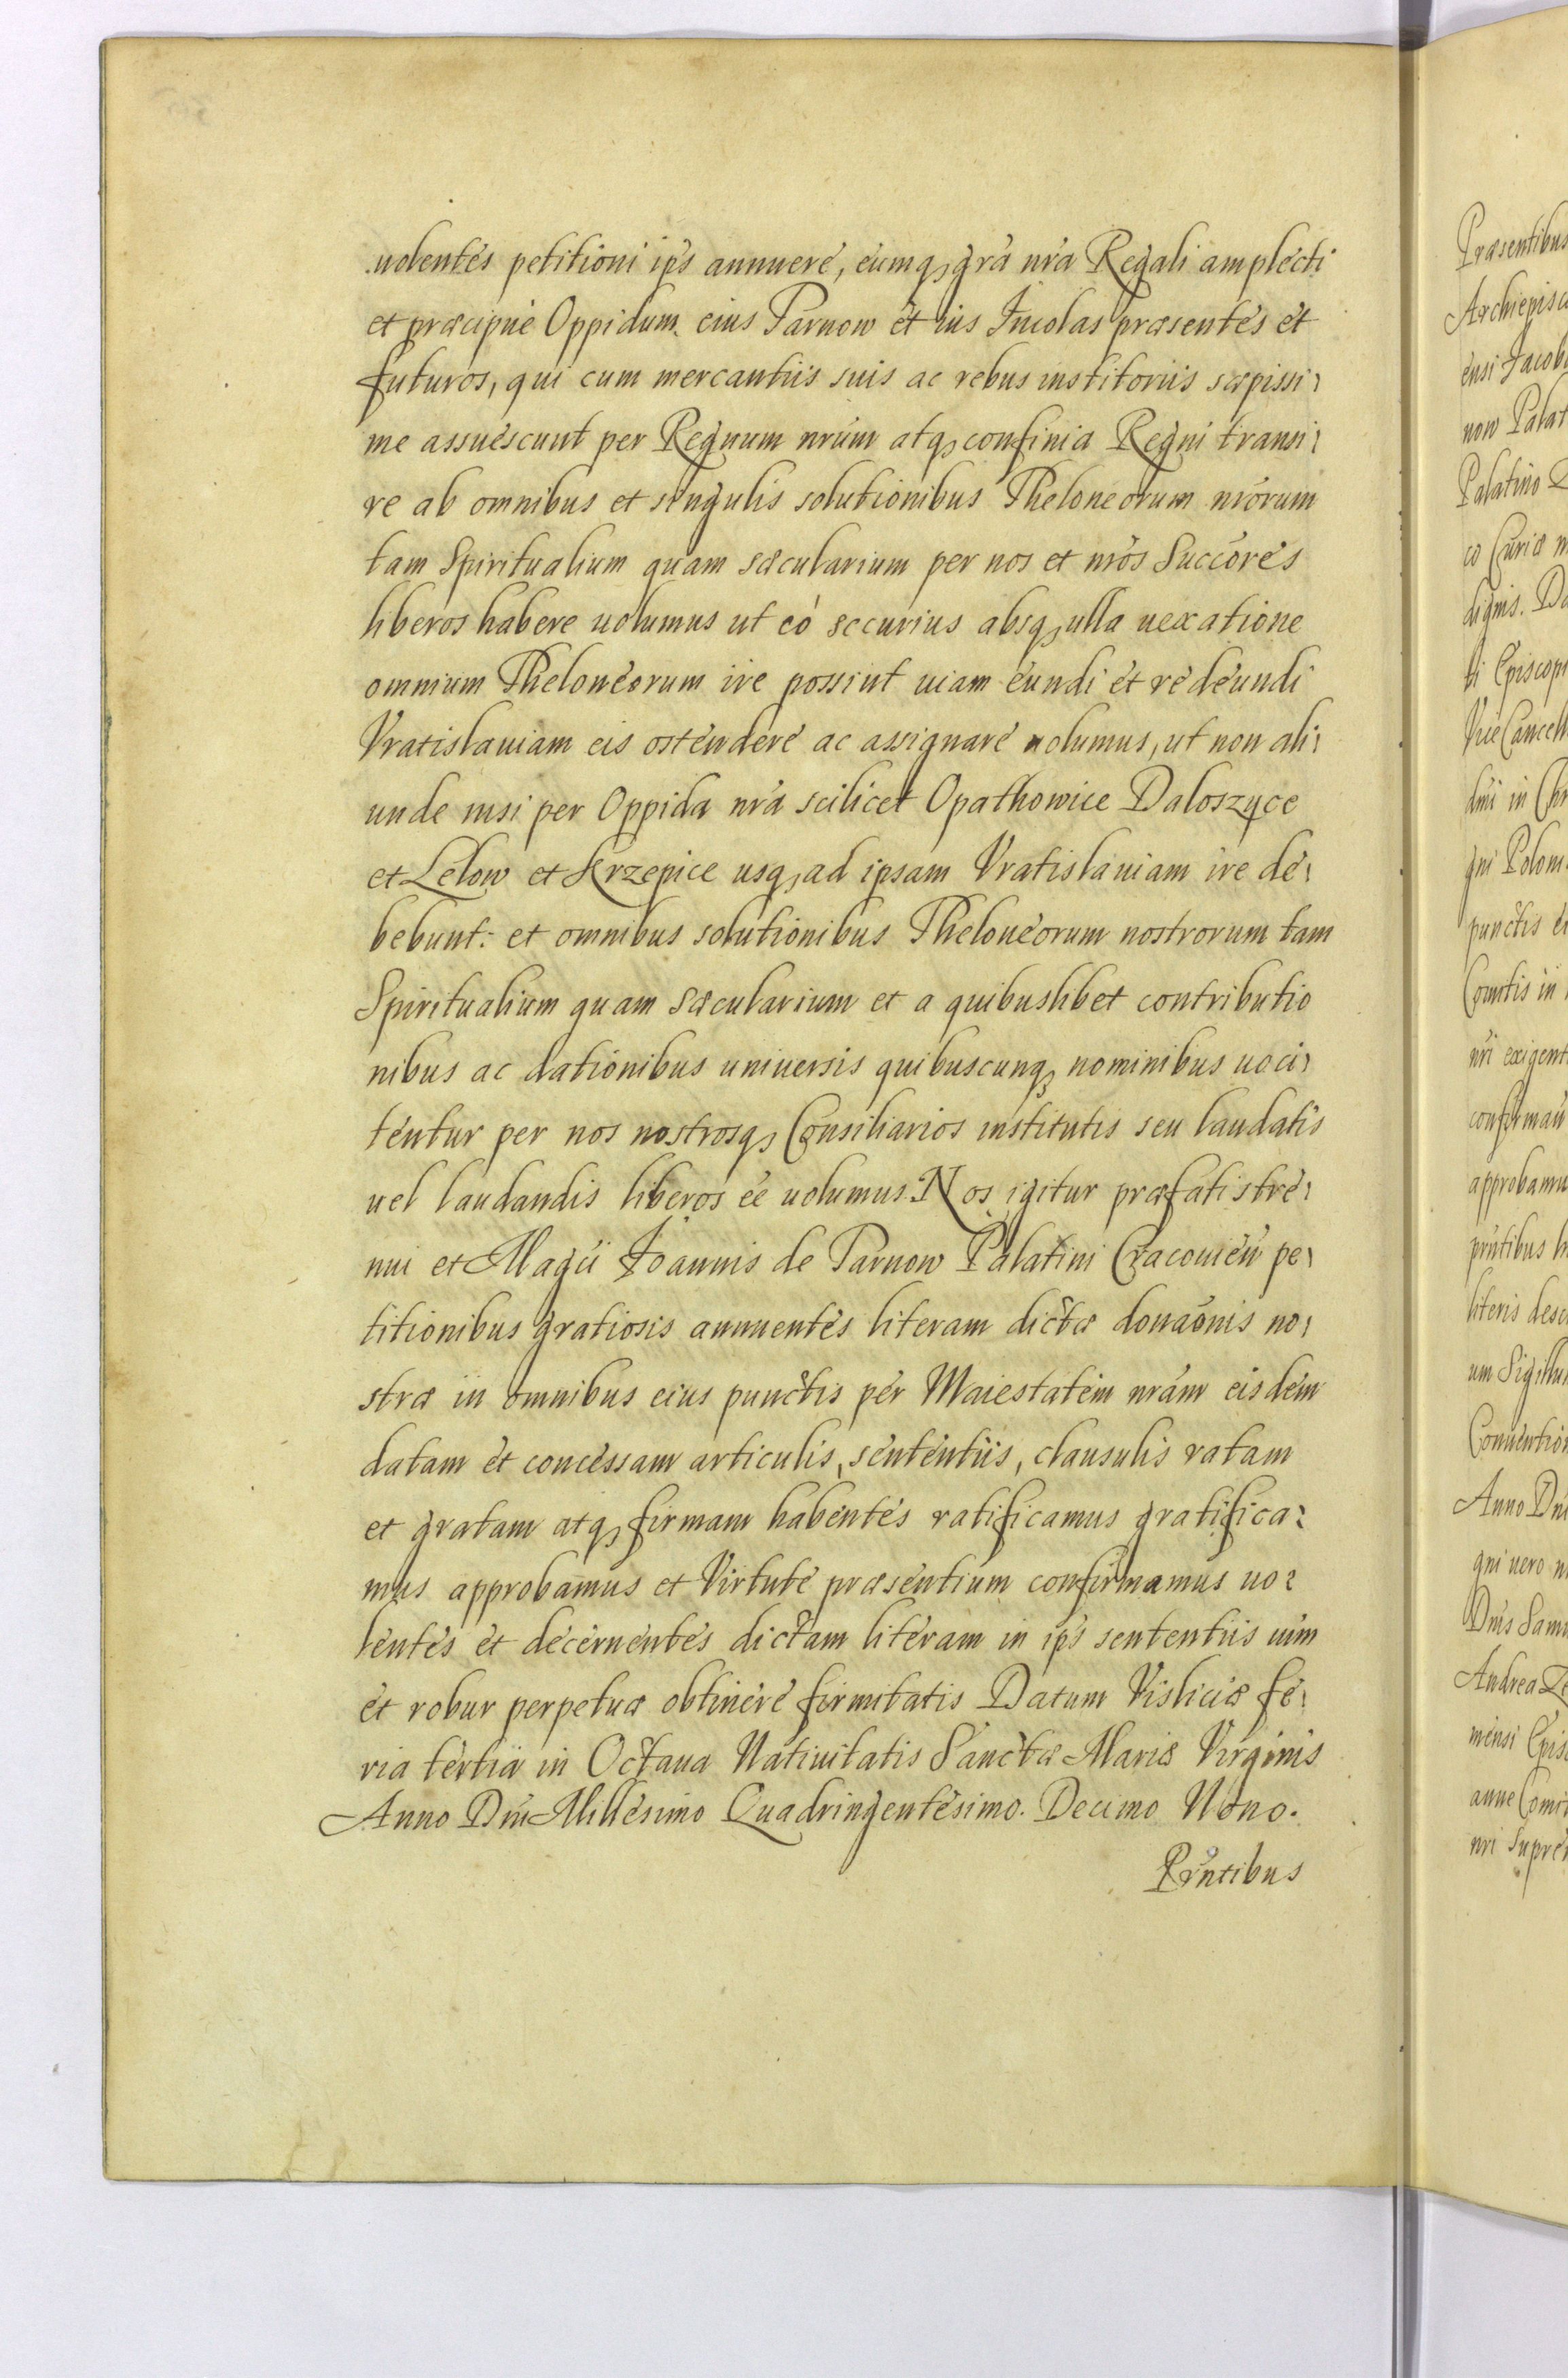 uolentes petitioni ip̃s annuere, eumq, gr̃a nr̃a Regali amplecti
et præcipue Oppidum eius Tarnow et ius Incolas præsentes et
futuros, qui cum mercantiis suis ac rebus institoriis sæpissi⸗
me assuescunt per Regnum nrũm atq, confinia Regni transi⸗
re ab omnibus et singulis solutionibus Theloneorum nrõrum
tam Spiritualium quam sæcularium per nos et nrõs Succõres
liberos habere uolumus ut eò securius absq, ulla uexatione
omnium Theloneorum ire possint uiam eundi et redeundi
Vratislauiam eis ostendere ac assignare uolumus, ut non ali⸗
unde nisi per Oppida nr̃a scilicet Opathowice Daloszyce
et Lelow et Krzepice usq, ad ipsam Vratislauiam ire de⸗
bebunt: et omnibus solutionibus Theloneorum nostrorum tam
Spiritualium quam Sæcularium et a quibuslibet contributio
nibus ac dationibus uniuersis quibuscunq, nominibus uoci⸗
tentur per nos nostrosq, Consiliarios institutis seu laudatis
uel laudandis liberos ẽe uolumus. Nos igitur præfati stre⸗
nui et Magc̃i Joannis de Tarnow Palatini Cracouien̄ pe⸗
titionibus gratiosis annuentes literam dictæ donaõnis no⸗
stræ in omnibus eius punctis per Maiestatem nrãm eisdem
datam et concessam articulis, sententiis, clausulis ratam
et gratam atq, firmam habentes ratificamus gratifica⸗
mus approbamus et Virtute præsentium confirmamus uo⸗
lentes et decernentes dictam literam in ip̃s sententiis uim
et robur perpetuæ obtinere firmitatis Datum Visliciæ fe⸗
ria tertia in Octaua Natiuitatis Sanctæ Mariæ Virginis
Anno Dnĩ Millesimo Quadringentesimo. Decimo Nono.
Prñtibus
Præsentibus
ensi Jacob
now Palat
Palatino
co Curiæ
dignis.
ti Episcop
Vice Cancell
dnĩ in Chr
gni Polon
punctis
in
nrĩ exigent
confirmau
approbamu
prñtibus
literis desc
um Sigillum
Conuention
Anno Dnĩ
gni uero
Dnũs Sam
Andrea
mensi Epis
anne Comi
nrĩ Supre